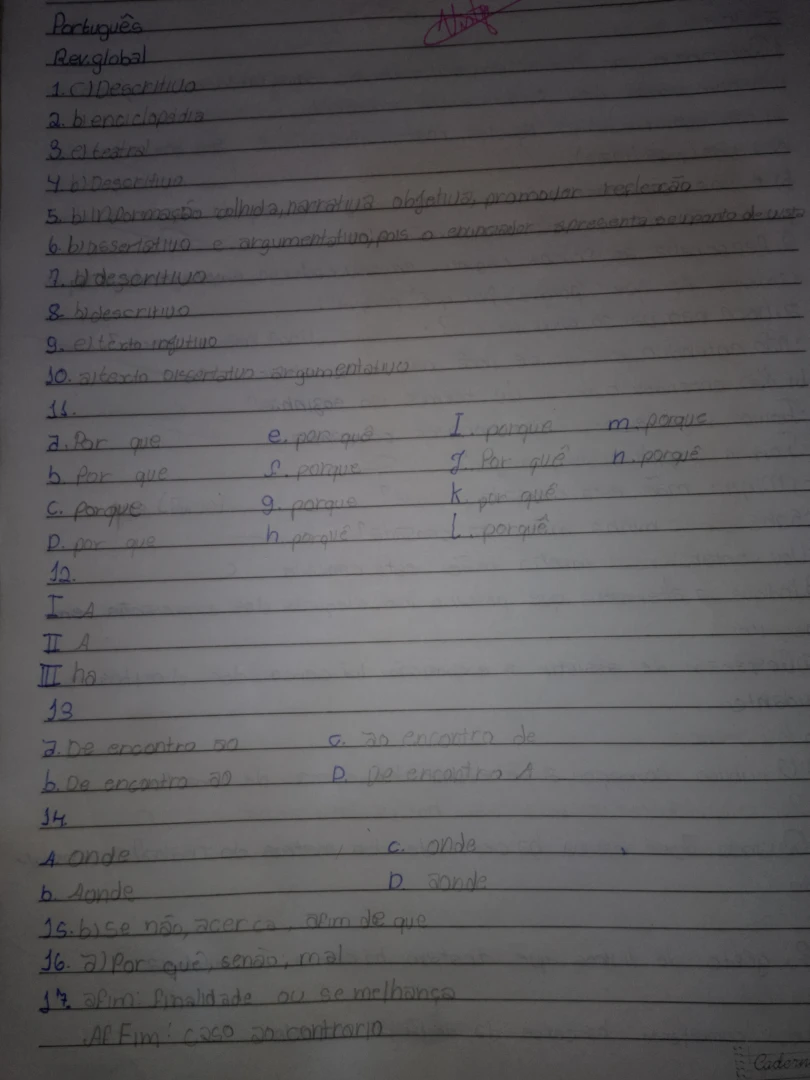 Português
Rev. global
1. c) Descritivo
2. b) enciclopédia
3. e) teatral
4 b) Descritivo
5. b) informação colhida, narrativa objetiva, promover reflexão
6. b) assertativo e argumentativo, pois o enunciador apresenta seu ponto de vista
7. b) descritivo
8. b) descritivo
9. e) texto injutivo
10. a) texto dissertativo argumentativo
11.
a. Por que e. por quê I. porque m. porque
b. Por que f. porque J. Por quê n. porquê
c. porque g. porque K. por quê
D. por que h. porquê L. porquê
12.
I A
II A
III ha
13
a. De encontro ao c. ao encontro de
b. De encontro ao D. De encontro A
14
A onde c. onde
b. Aonde D aonde
15. b) se não, acerca, afim de que
16. a) Por quê, senão, mal
17. afim: finalidade ou semelhança
Al Fim: caso ao contrario
Cadern